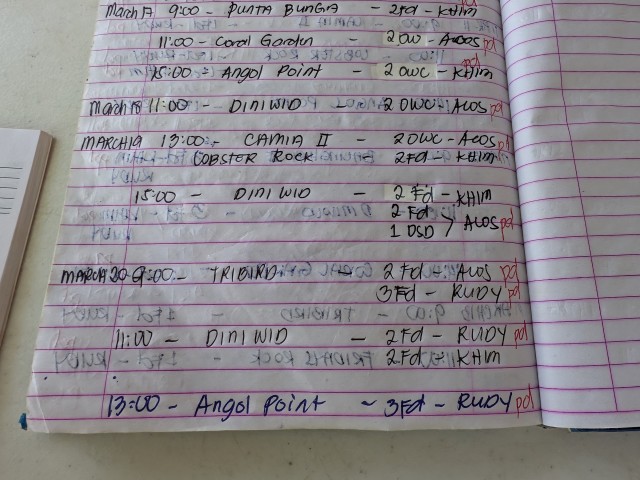 March 17 9:00 - PUNTA BUNGA - 2Fd - KHIM
11:00 - Coral Garden - 2OW - ACOS pd
15:00 - Angol Point - 2 OWC - KHIM pd
March 18 11:00 - DINIWID - 2 OWC - ACOS pd
MARCH 19 13:00 - CAMIA II - 2OWC - ACOS pd
LOBSTER ROCK - 2Fd - KHIM
15:00 - DINIWID - 2 Fd - KHIM
2 Fd
1 DSD > ACOS pd
MARCH 20 9:00 - TRIBIRD - 2 Fd - ACOS pd
3Fd - RUDY pd
11:00 - DINIWID - 2Fd - RUDY pd
2Fd - KHIM
13:00 - Angol Point - 3Fd - RUDY pd